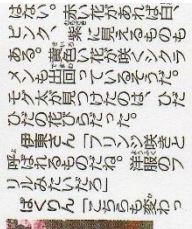 はない。赤い花があれば白、
ピンク、紫に見えるものも
ある。黄色い花が咲くシクラ
メンも出回っているそうだ。
モグ太が見つけたのは、ひだ
ひだの花びらだった。
伊東さん「フリンジ咲きと
呼ばれるものだね。洋服のフ
リルみたいだろ」
ぱくりん「こちらも変わっ